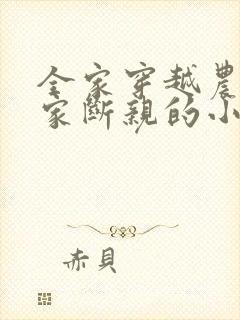 全家穿越農
家斷親的小
赤貝